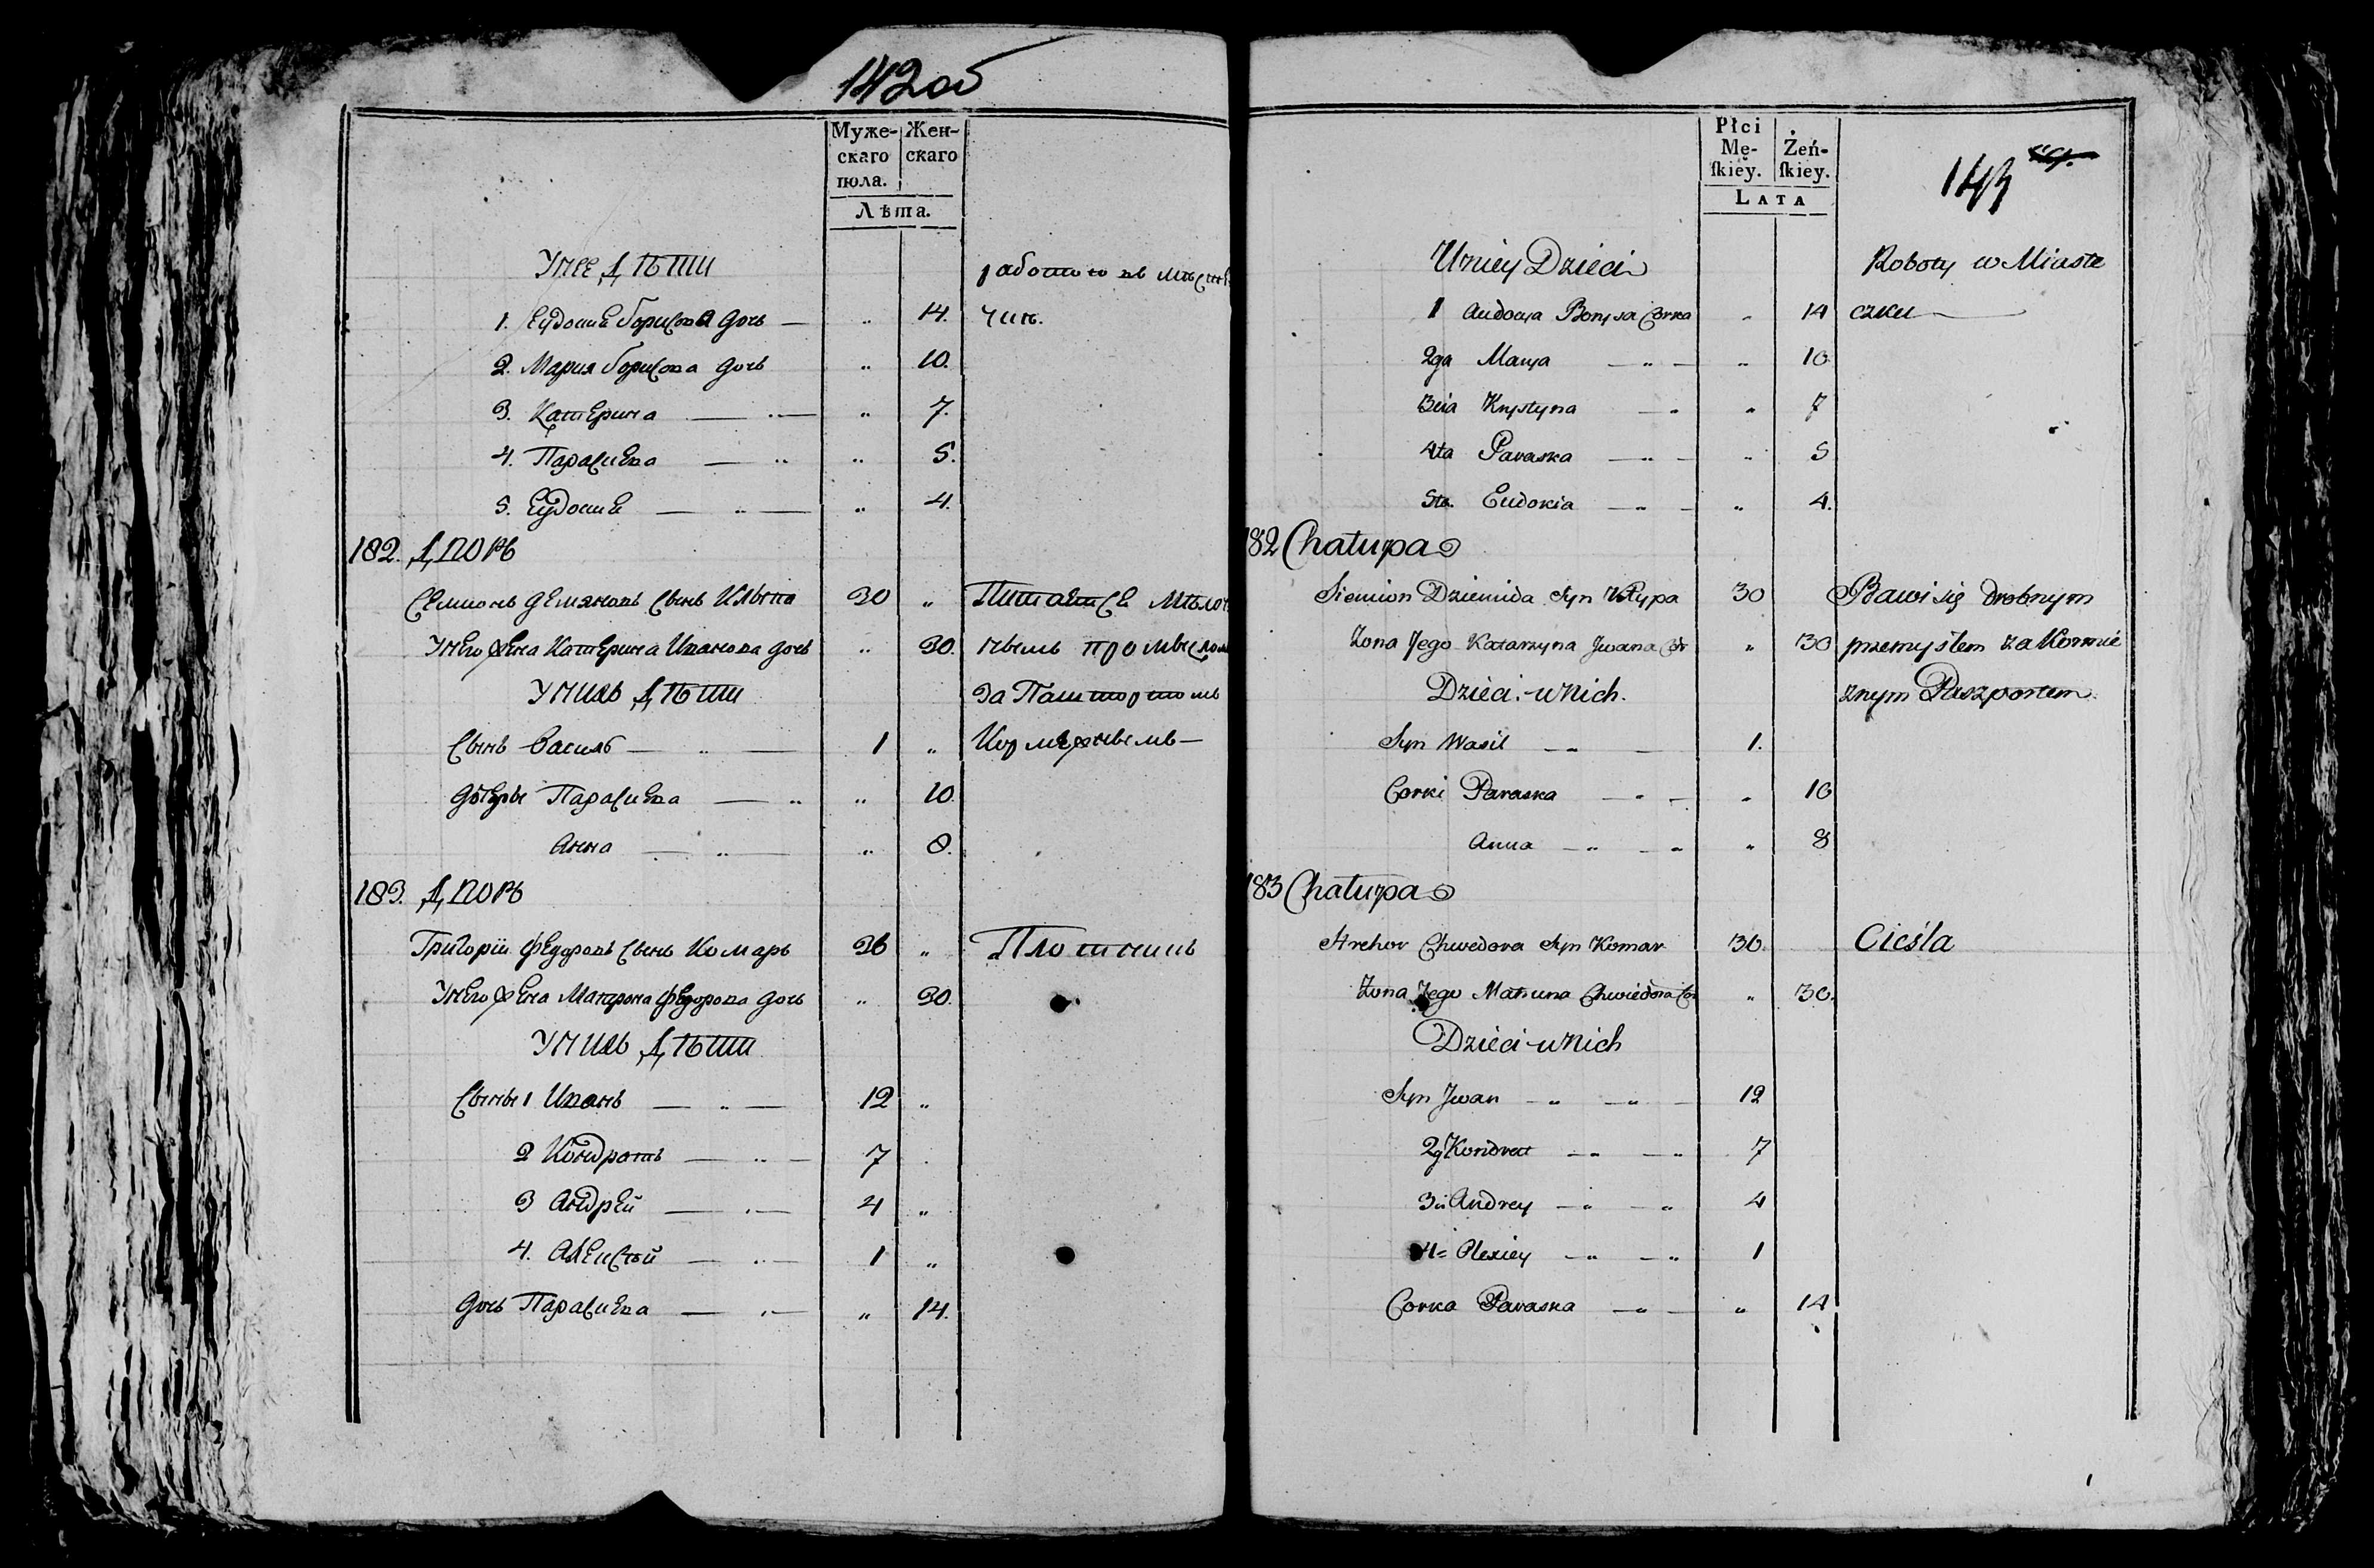 142об
Муже- Жен-
скаго скаго
пола.
Лѣта.
У нее Дѣти работою въ мѣстѣ
1. Еудоция Борисова дочь — „ 14. чик.
2. Мария Борисова дочь „ 10.
3. Катерина — „ — „ 7.
4. Парасиева — „ „ 5.
5. Еудоция — „ — „ 4.
182. Дворъ
Семионъ Демяновъ сынъ 30 „ Питается мѣлоч
У него жена Катерина Иванова дочь „ 30. нымъ промысломъ
У нихъ Дѣти за Пашпортомъ
Сынъ Василь — „ — 1 „ Кормежнымъ —
дочеры Парасиева — „ „ 10.
Анна — „ — „ 8.
183. Дворъ
Григорій Федоровъ сынъ Комаръ 36 „ Плотникъ
У него жена Матрона Федорова дочь „ 30.
У нихъ Дѣти
Сыны 1 Иванъ — „ — 12 „
2 Кондратъ — „ — 7
3 Андрей — „ — 4 „
4. Алексѣй — „ — 1 „
дочь Парасиева — „ — „ 14.
143
Płci
Mę- Żeń-
ſkiey. ſkiey.
LATA
U niey Dzieci Roboty w Miaste
1 Audocya Borysa Corka „ 14 czku —
2ga Marya — „ — „ 10
3cia Krystyna — „ „ 7
4ta Paraska — „ — „ 5
5ta. Eudokia — „ — „ 4.
182 Chałupa
Siemion Dziemida Syn 30 Bawi się drobnym
Żona Jego Katarzyna Jwana Cor „ 30 przemysłem za Kormie
Dzieci u Nich. znym Paszportem
Syn Wasil — „ — 1.
Corki Paraska — „ — „ 10
Anna — „ — „ „ 8
183 Chałupa
Hrehor Chwedora Syn Komar 36. Cieśla
Żona Jego Matruna Chwiedora Cor „ 30.
Dzieci u Nich
Syn Jwan — „ — „ — 12
2gi Kondrat — „ — „ 7
3ci Andrey — „ — „ 4
4= Olexiey — „ — „ 1
Corka Paraska — „ — „ 14